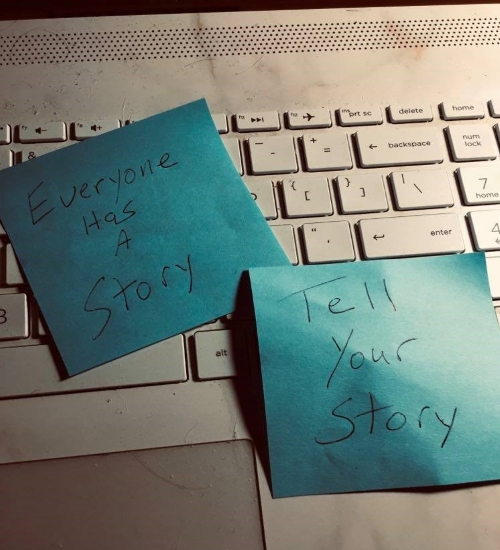 Everyone
Has
A
Story
Tell
Your
Story
f11 prt sc delete home
- _ = + backspace num lock
[ { ] } \ | 7 home
' " enter 4
3
alt